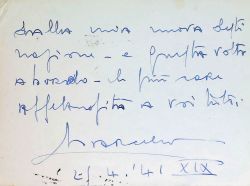 Dalla mia nuova desti
nazione - e questa volta
a bordo - le più care
affettuosità a voi tutti.
21.4.41 XIX